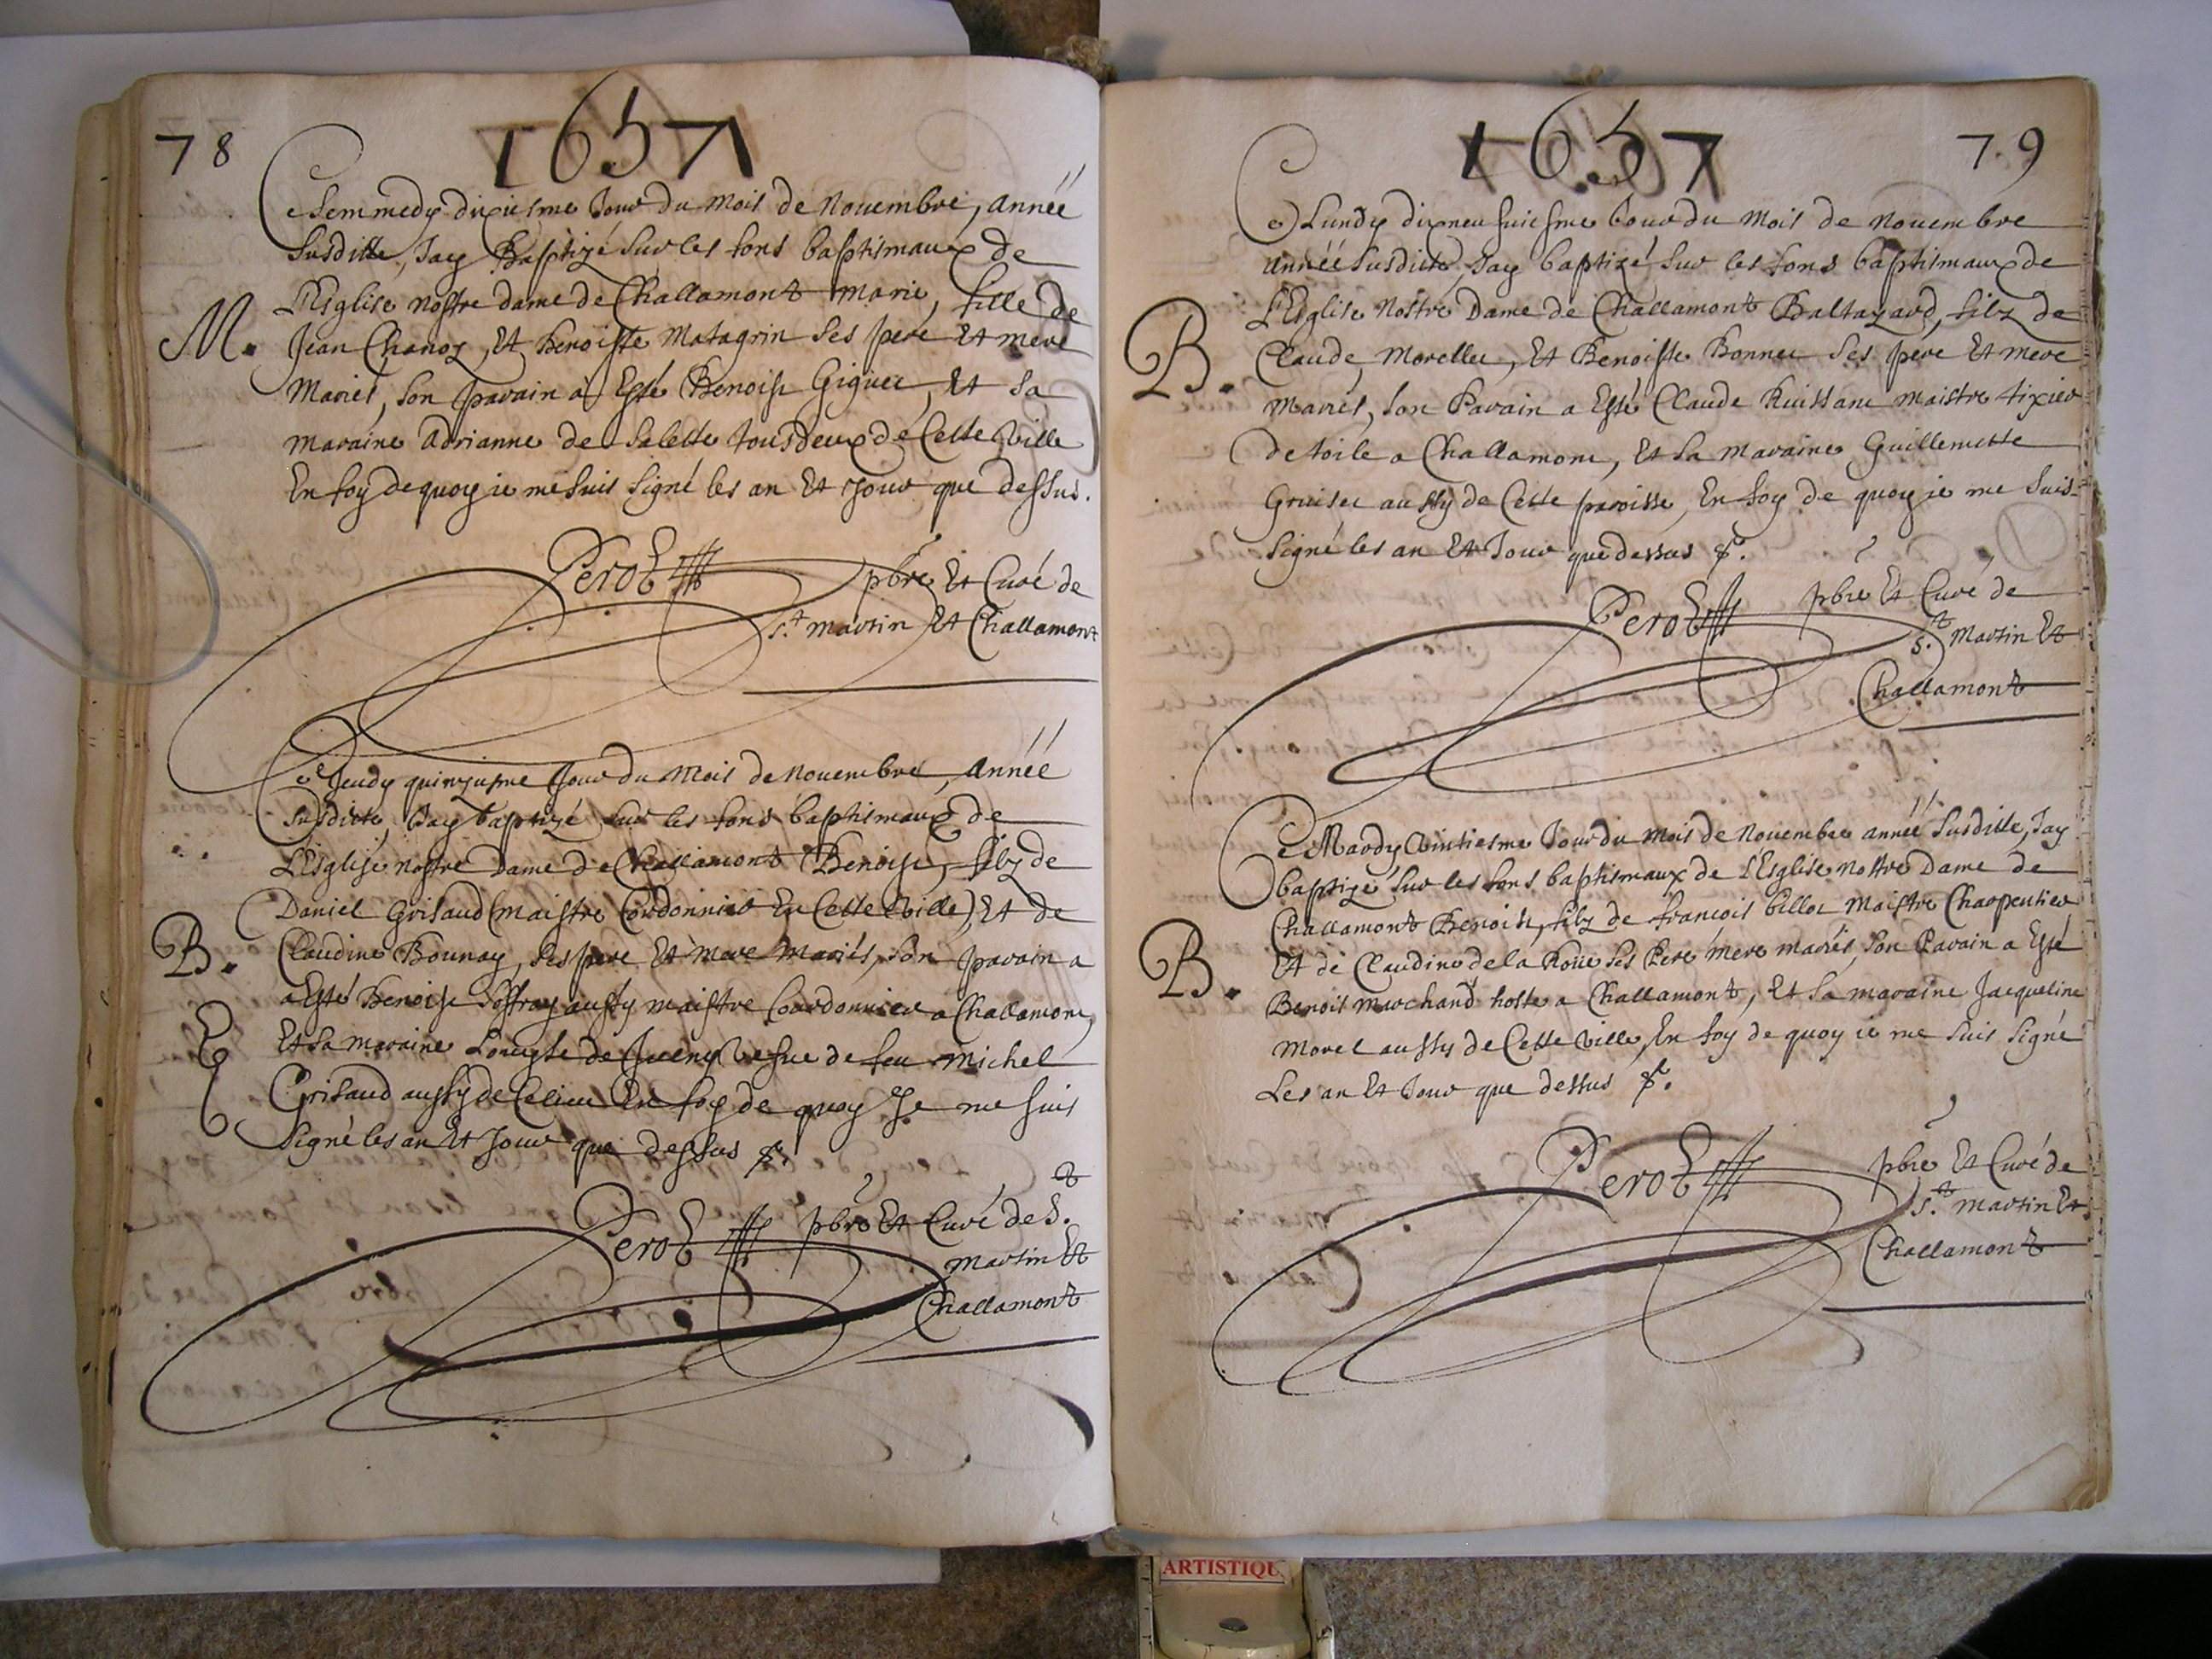 78
1657
Ce Semmedy dixiesme Jour du Mois de Nouembre, Année
susditte, Jay Baptizé sur les fons baptismaux de
L'Esglise nostre dame de Challamont Marie, fille de
M.
Jean Chanoz, Et Benoiste Matagrin ses pere Et mere
Mariés, son parain à Esté Benoist Giguet, Et sa
maraine Adrianne de Salette tous deux de Cette Ville
En foy de quoy ie me suis signé les an Et Jour que dessus.
Perot pbre Et Curé de
St. martin Et Challamont
Ce Jeudy quinziesme Jour du Mois de Nouembre, Année
susditte, Jay baptizé sur les fons baptismaux de
L'Esglise nostre Dame de Challamont Benoist, filz de
Daniel Grisaud (maistre Cordonnier En Cette Ville) Et de
B.
Claudine Bounay, ses pere Et Mere Mariés, son parain a
a Esté Benoist Soffray aussy maistre Courdonnier a Challamont,
Et sa maraine Louyse de vefue de feu Michel
Grisaud aussy de Celieu En foy de quoy Je me suis
signé les an Et Jour que dessus
Perot pbre Et Curé de St.
martin Et
Challamont
1657
79
Ce Lundy dixneufuiesme Jour du Mois de Nouembre
Année susditte, Jay baptizé sur les fons baptismaux de
L'Esglise Nostre Dame de Challamont Baltazard, filz de
B.
Claude Morellet, Et Benoiste Bonnet ses pere Et mere
Mariés, son Parain a Esté Claude Ruissant maistre tixier
de toile a Challamont, Et sa Maraine Guillemette
aussy de Cette paroisse, En foy de quoy je me suis
signé les an Et Jour que dessus
Perot pbre Et Curé de
St. Martin Et
Challamont
Ce Mardy Vintiesme Jour du Mois de Nouembre année susditte, Jay
baptizé sur les fons baptismaux de L'Esglise Nostre Dame de
Challamont Benoist, filz de francois billot Maistre Charpentier
B.
Et de Claudine de la Roüe ses Pere mere mariés, son Parain a Esté
Benoit Marchand hoste a Challamont, Et sa maraine Jacqueline
Morel aussy de Cette Ville, En foy de quoy ie me suis signé
Les an Et Jour que dessus
Perot pbre Et Curé de
St. Martin Et
Challamont
ARTISTIQU